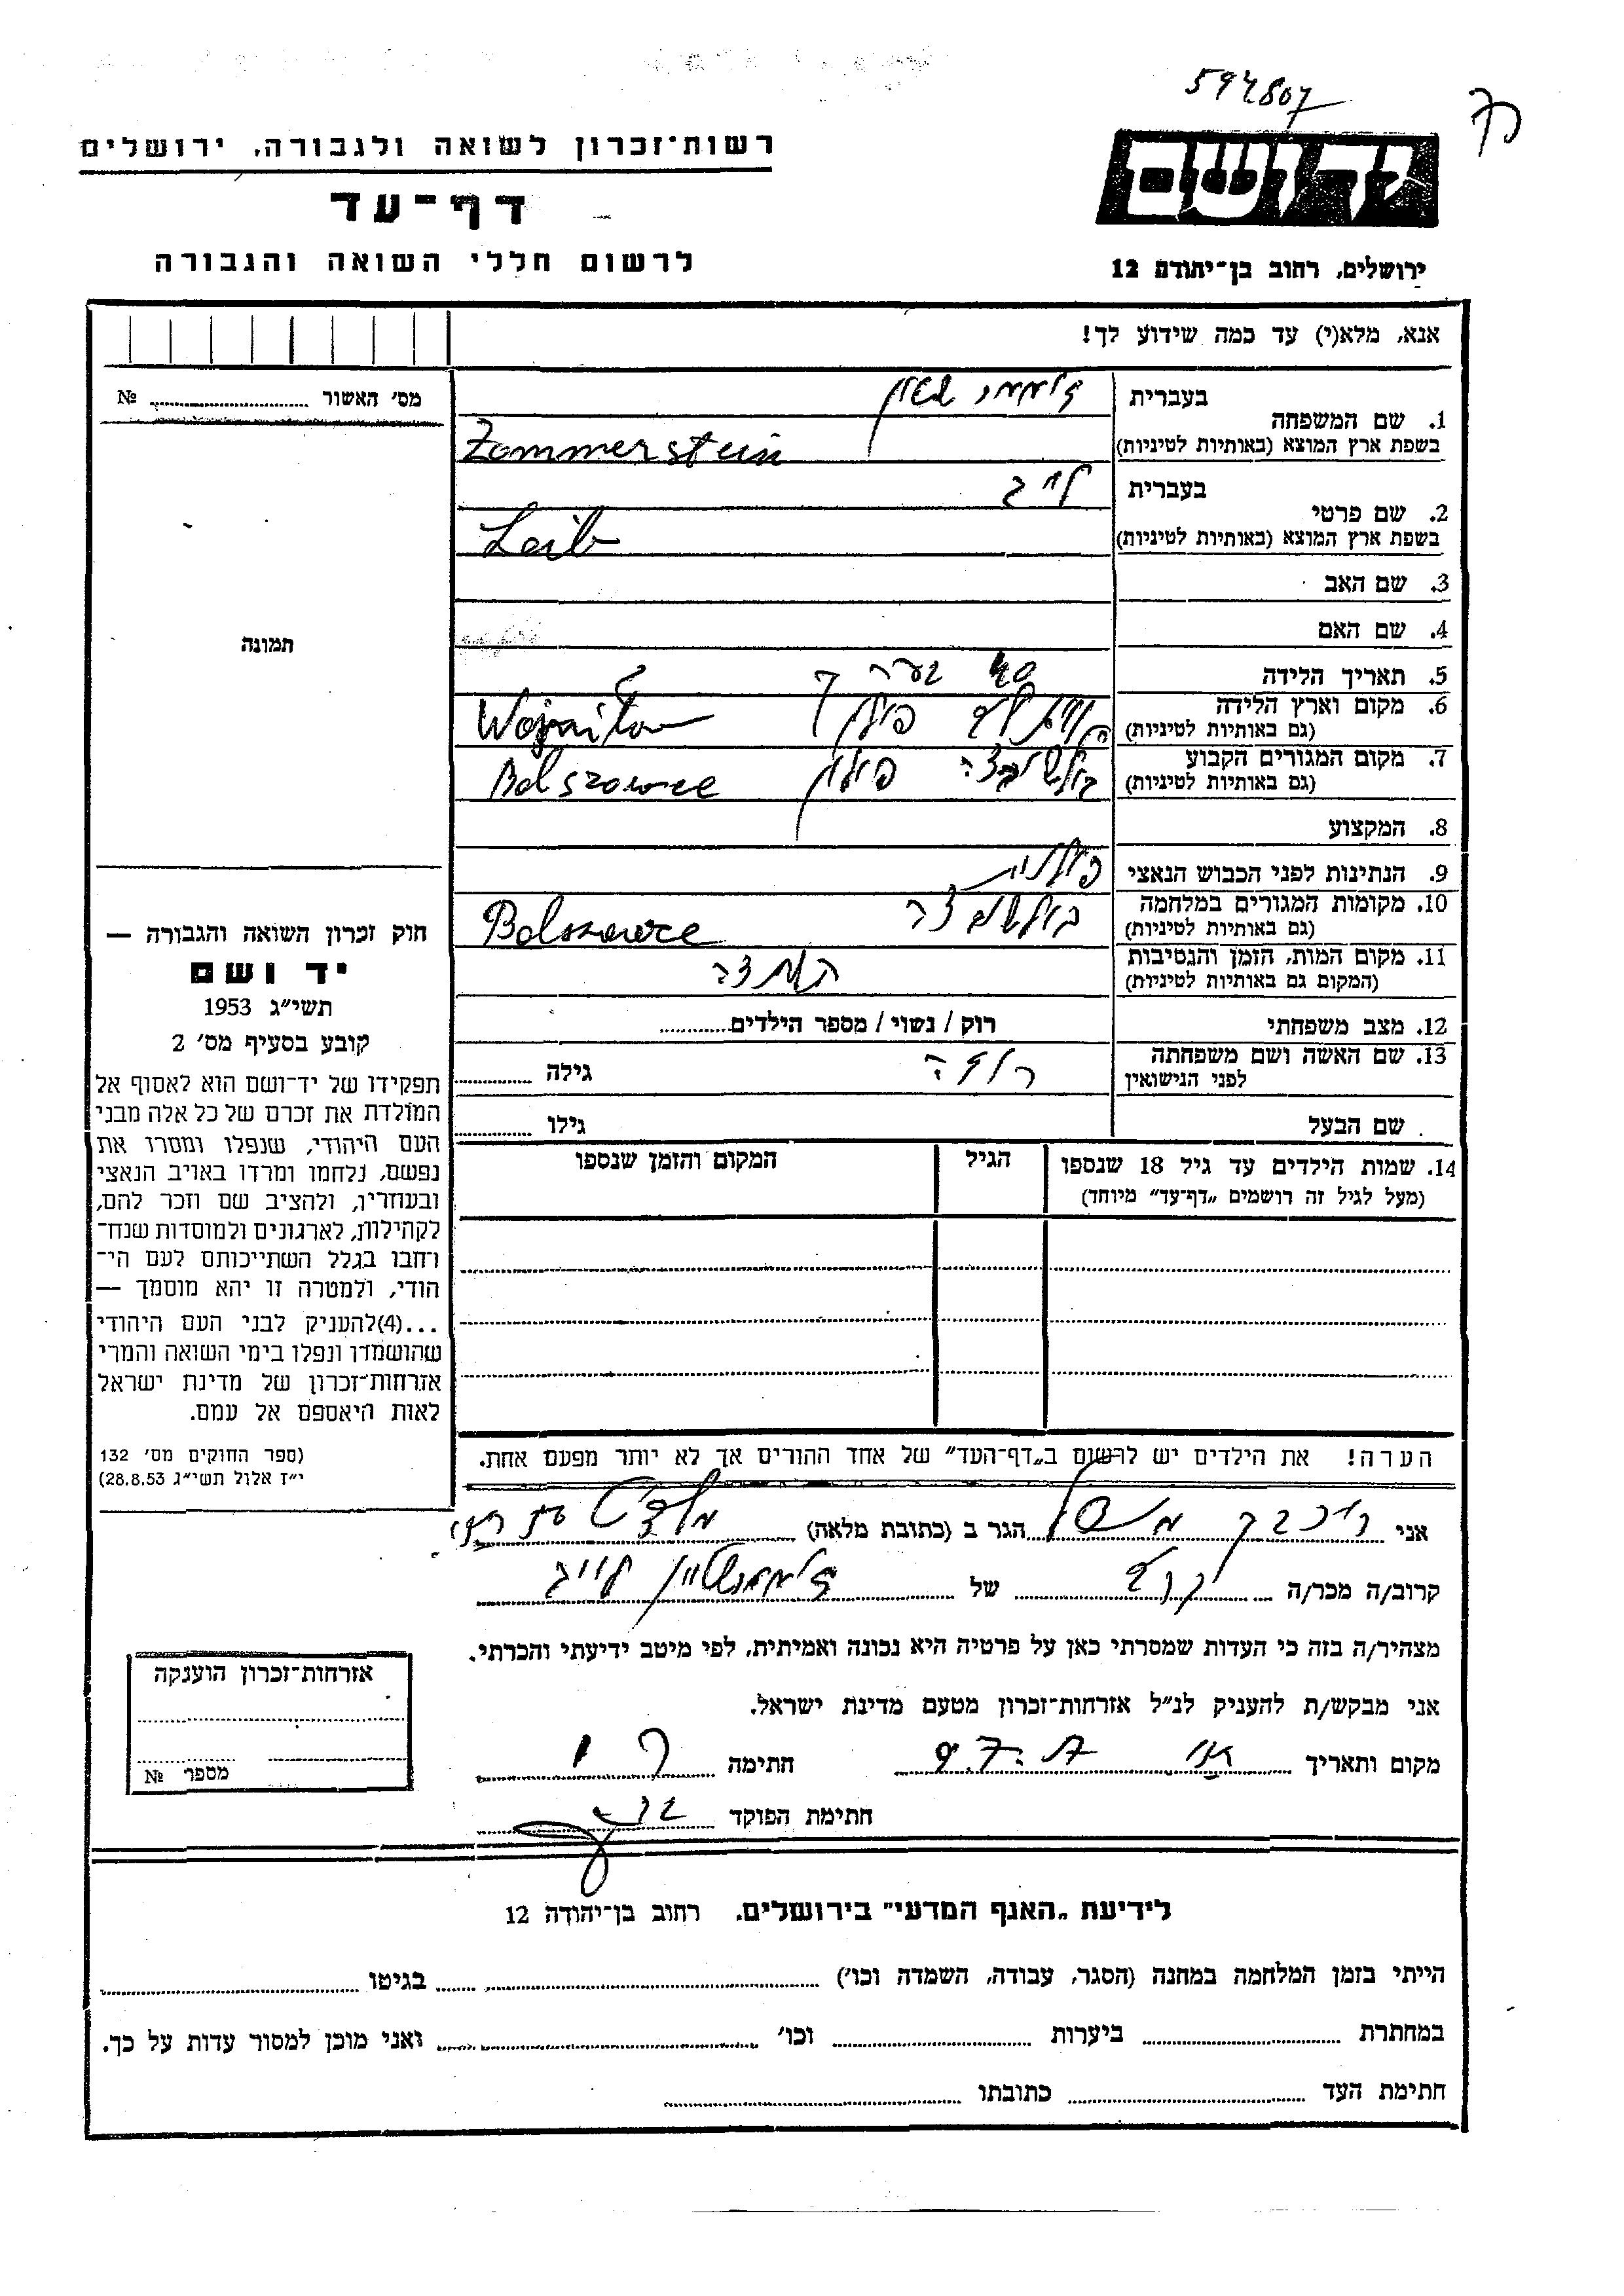 594807
רשות־זכרון לשואה ולגבורה, ירושלים
דף־עד
לרשום חללי השואה והגבורה
יד ושם
ירושלים, רחוב בן־יהודה 12
אנא, מלא(י) עד כמה שידוע לך!
מס׳ האשור № 
תמונה
חוק זכרון השואה והגבורה —
יד ושם
תשי״ג 1953
קובע בסעיף מס׳ 2
תפקידו של יד־ושם הוא לאסוף אל
המולדת את זכרם של כל אלה מבני
העם היהודי, שנפלו ומסרו את
נפשם, נלחמו ומרדו באויב הנאצי
ובעוזריו, ולהציב שם וזכר להם,
לקהילות, לארגונים ולמוסדות שנח־
רחבו בגלל השתייכותם לעם הי־
הודי, ולמטרה זו יהא מוסמך —
...(4)להעניק לבני העם היהודי
שהושמדו ונפלו בימי השואה והמרי
אזרחות־זכרון של מדינת ישראל
לאות היאספם אל עמם.
(ספר החוקים מס׳ 132
י״ז אלול תשי״ג 28.8.53)
בעברית
1. שם המשפחה
בשפת ארץ המוצא (באותיות לטיניות) Zommerstein
בעברית לייב
2. שם פרטי
בשפת ארץ המוצא (באותיות לטיניות) Leib
3. שם האב
4. שם האם
5. תאריך הלידה 40 בערך
6. מקום וארץ הלידה פולין
(גם באותיות לטיניות)
7. מקום המגורים הקבוע בולשובצה פולין Bolszowce
(גם באותיות לטיניות)
8. המקצוע
9. הנתינות לפני הכבוש הנאצי פולנית
10. מקומות המגורים במלחמה בולשובצה Bolszowce
(גם באותיות לטיניות)
11. מקום המות, הזמן והנסיבות
(המקום גם באותיות לטיניות)
12. מצב משפחתי רוק / נשוי / מספר הילדים
13. שם האשה ושם משפחתה גילה
לפני הנישואין
שם הבעל גילו
14. שמות הילדים עד גיל 18 שנספו הגיל המקום והזמן שנספו
(מעל לגיל זה רושמים „דף־עד״ מיוחד)
הערה! את הילדים יש לרשום ב„דף־העד״ של אחד ההורים אך לא יותר מפעם אחת.
אני הגר ב (כתובת מלאה)
קרוב/ה מכר/ה של לייב
מצהיר/ה בזה כי העדות שמסרתי כאן על פרטיה היא נכונה ואמיתית, לפי מיטב ידיעתי והכרתי.
אני מבקש/ת להעניק לנ״ל אזרחות־זכרון מטעם מדינת ישראל.
מקום ותאריך חתימה
חתימת הפוקד
אזרחות־זכרון הוענקה
מספר №
לידיעת „האגף המדעי״ בירושלים. רחוב בן־יהודה 12
הייתי בזמן המלחמה במחנה (הסגר, עבודה, השמדה וכו׳) בגיטו
במחתרת ביערות וכו׳ ואני מוכן למסור עדות על כך.
חתימת העד כתובתו